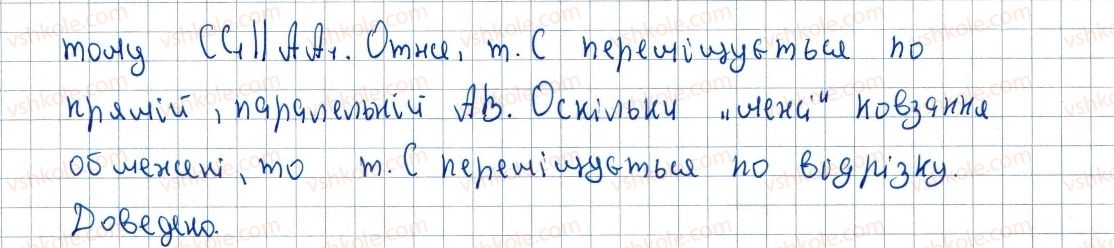 тому CC₁ || AA₁. Отже, т. C переміщується по
прямій, паралельній AB. Оскільки „межі“ ковзання
обмежені, то т. C переміщується по водрізку.
Доведено.